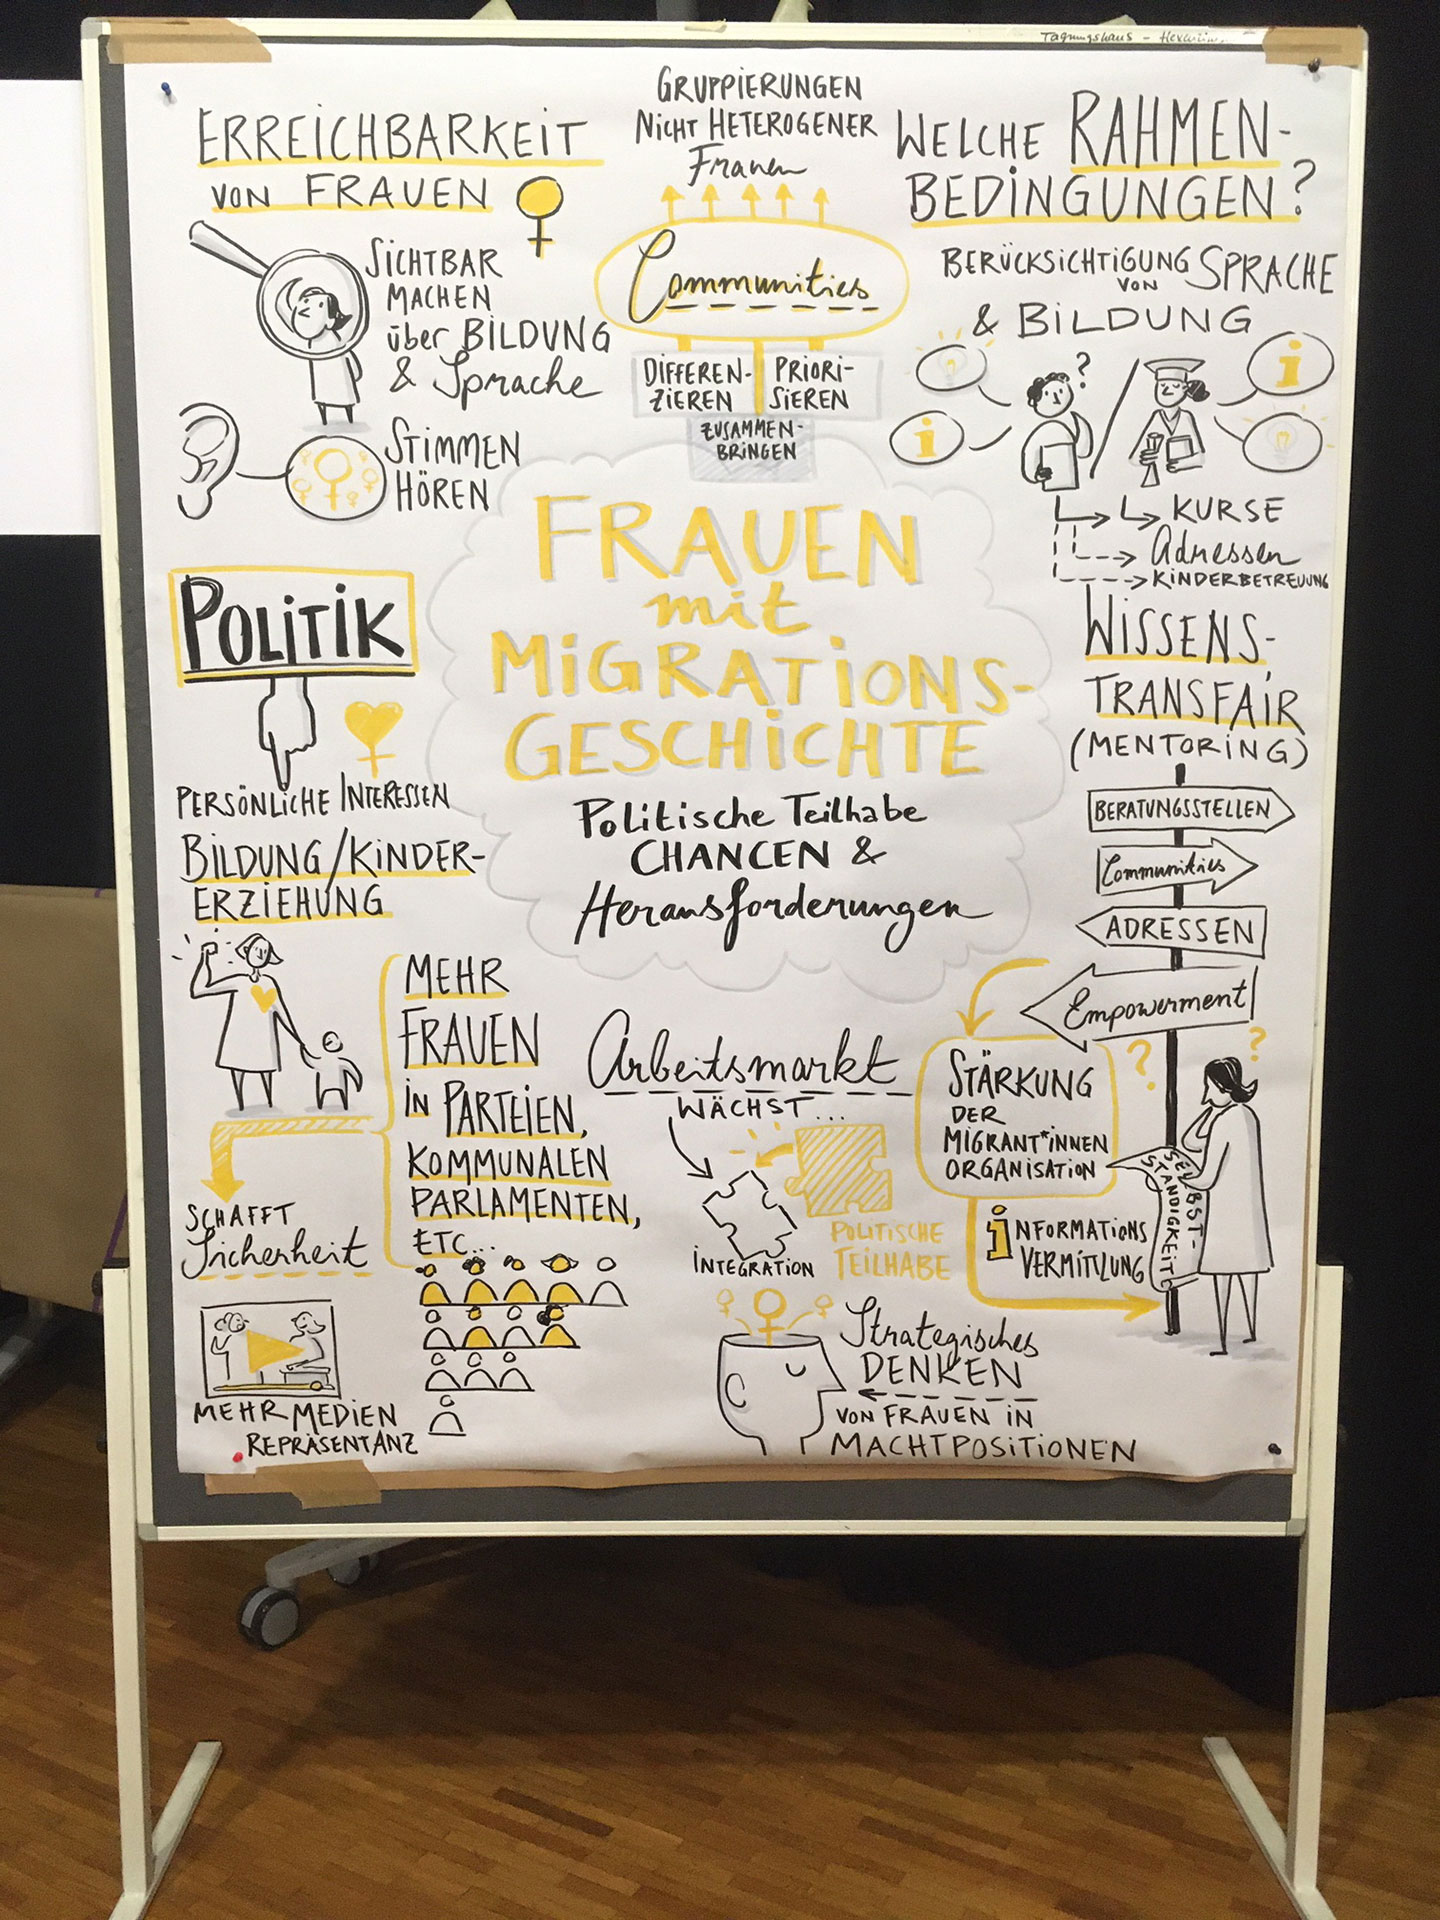 Tagungshaus -
ERREICHBARKEIT
VON FRAUEN
SICHTBAR
MACHEN
über BILDUNG
& Sprache
STIMMEN
HÖREN
GRUPPIERUNGEN
NICHT HETEROGENER
Frauen
Communities
DIFFEREN-
ZIEREN
PRIORI-
SIEREN
ZUSAMMEN-
BRINGEN
WELCHE RAHMEN-
BEDINGUNGEN?
BERÜCKSICHTIGUNG
VON SPRACHE
& BILDUNG
i
i
?
KURSE
Adressen
KINDERBETREUUNG
FRAUEN
mit
MIGRATIONS-
GESCHICHTE
Politische Teilhabe
CHANCEN &
Herausforderungen
POLITIK
PERSÖNLICHE INTERESSEN
BILDUNG/KINDER-
ERZIEHUNG
SCHAFFT
Sicherheit
MEHR
FRAUEN
IN PARTEIEN,
KOMMUNALEN
PARLAMENTEN,
ETC...
MEHR MEDIEN
REPRÄSENTANZ
WISSENS-
TRANSFAIR
(MENTORING)
BERATUNGSSTELLEN
Communities
ADRESSEN
Empowerment
Arbeitsmarkt
WÄCHST...
INTEGRATION
POLITISCHE
TEILHABE
STÄRKUNG
DER
MIGRANT*INNEN
ORGANISATION
INFORMATIONS
VERMITTLUNG
? ?
SELBST-
STÄNDIGKEIT
Strategisches
DENKEN
VON FRAUEN IN
MACHTPOSITIONEN